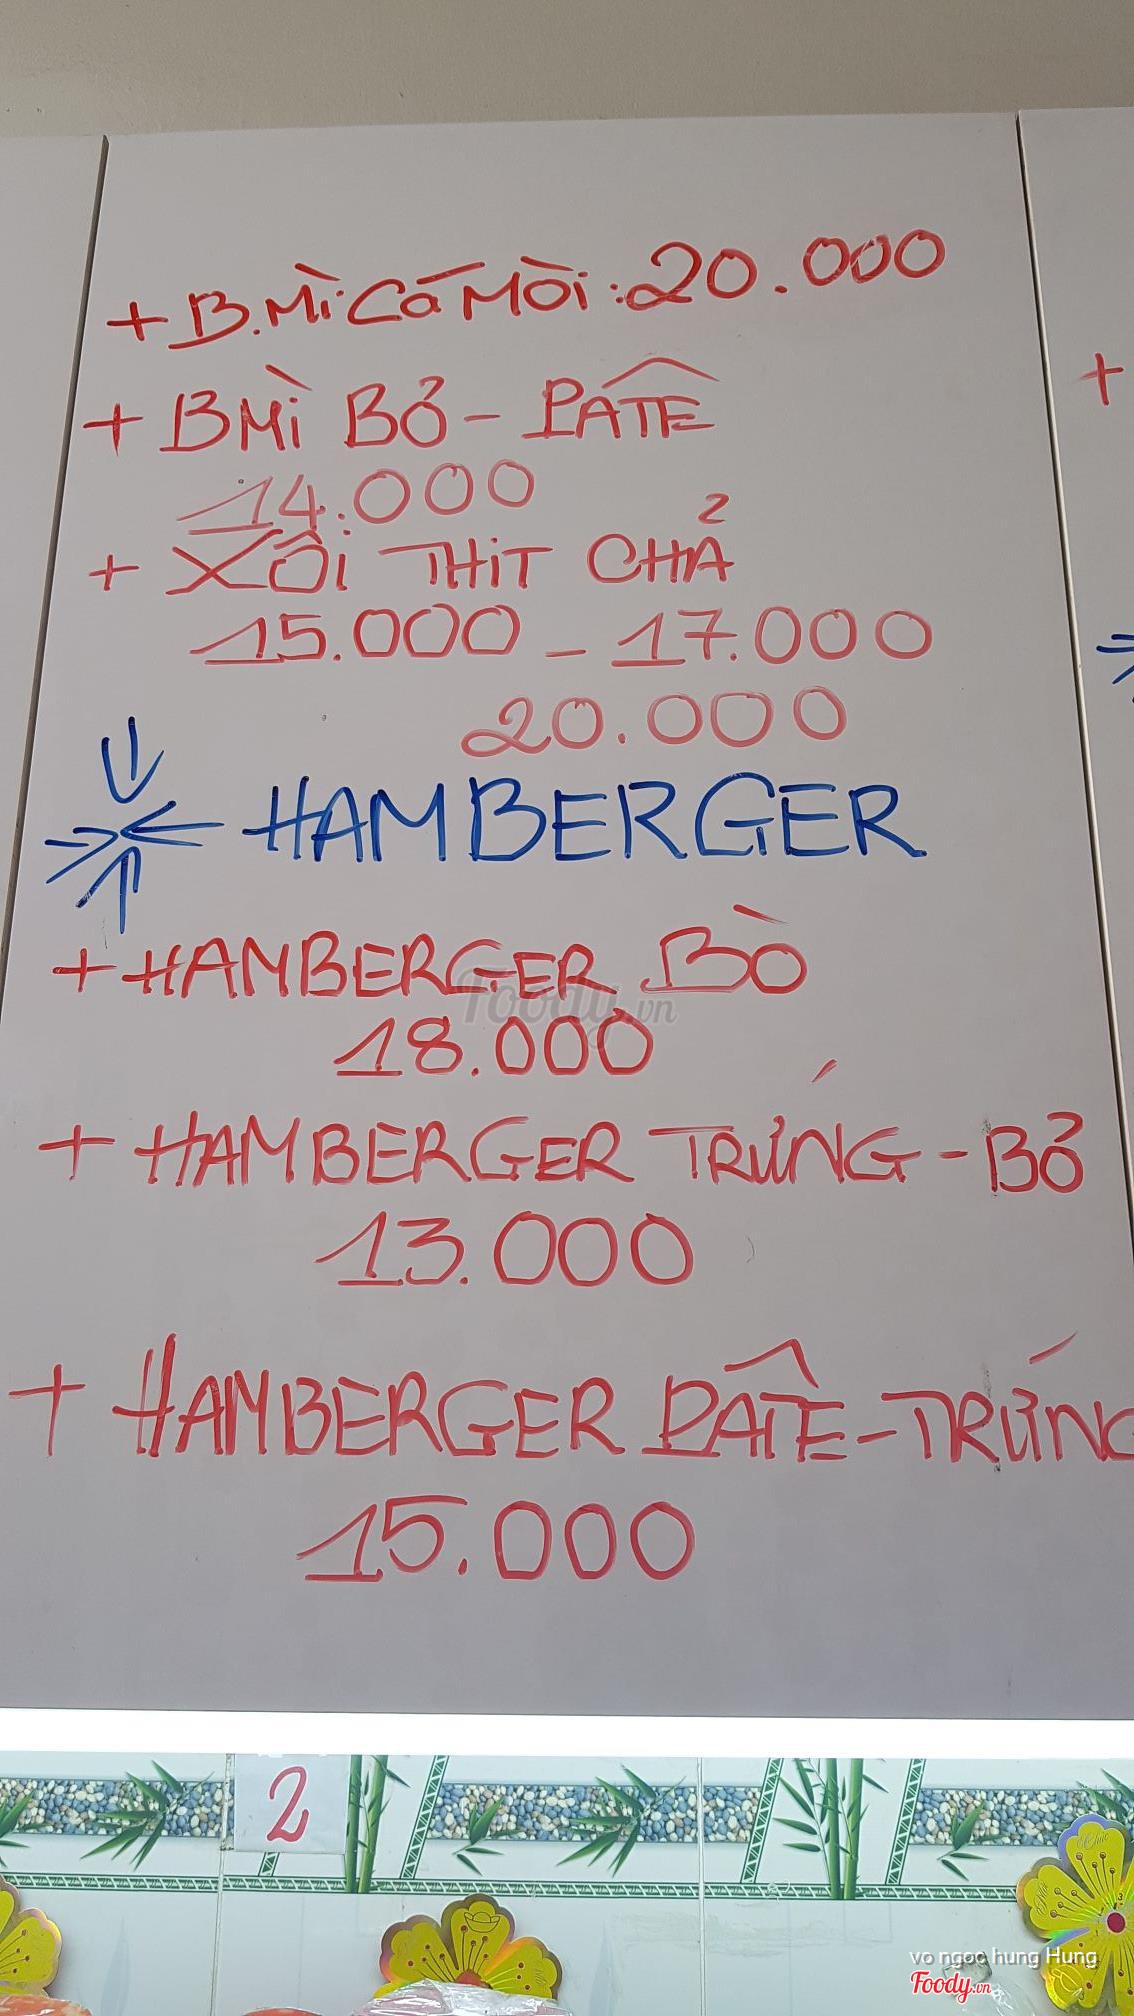 + B.Mì Cá Mòi: 20.000
+ BMÌ BỞ - PATÊ
14.000
+ XÔI THIT CHẢ
15.000 - 17.000
20.000
HAMBERGER
+ HAMBERGER BÒ
18.000
+ HAMBERGER TRỨNG - BỞ
13.000
+ HAMBERGER PATÊ - TRỨNG
15.000
2
Foody.vn
vo ngoc hung Hung
Foody.vn